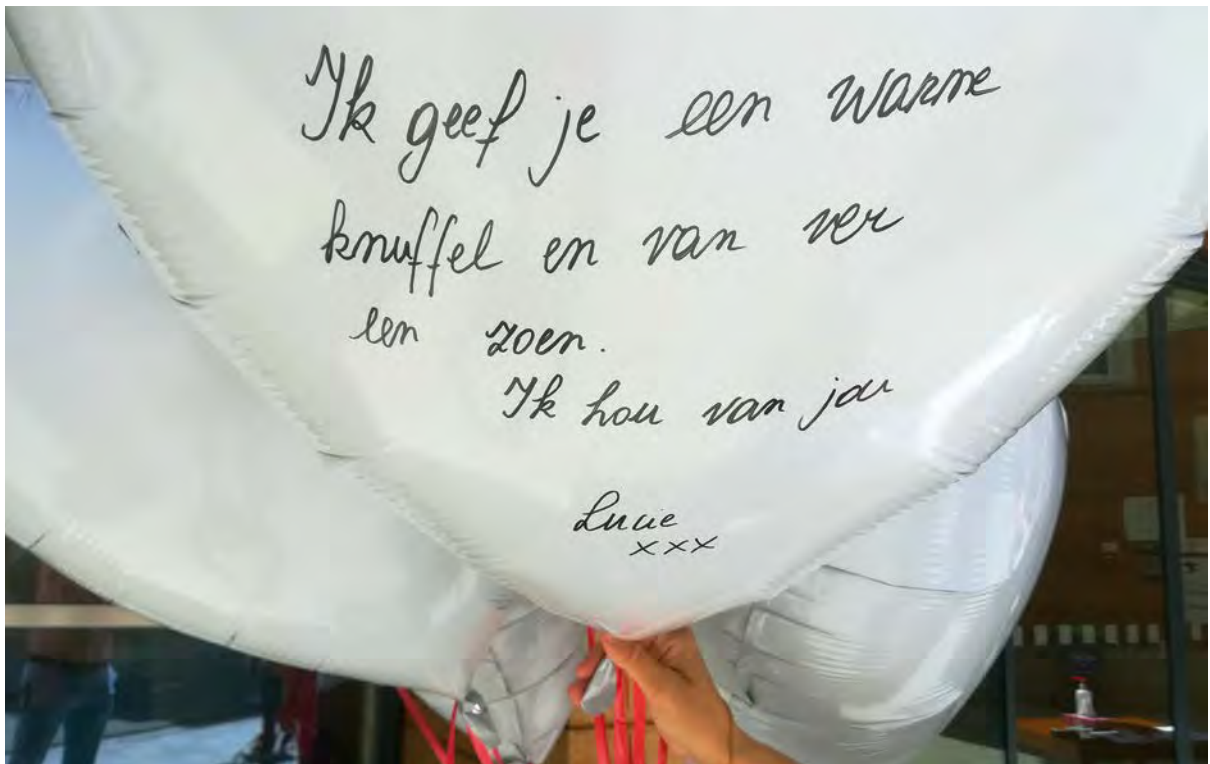 Ik geef je een warme
knuffel en van ver
een zoen.
Ik hou van jou
Lucie
xxx